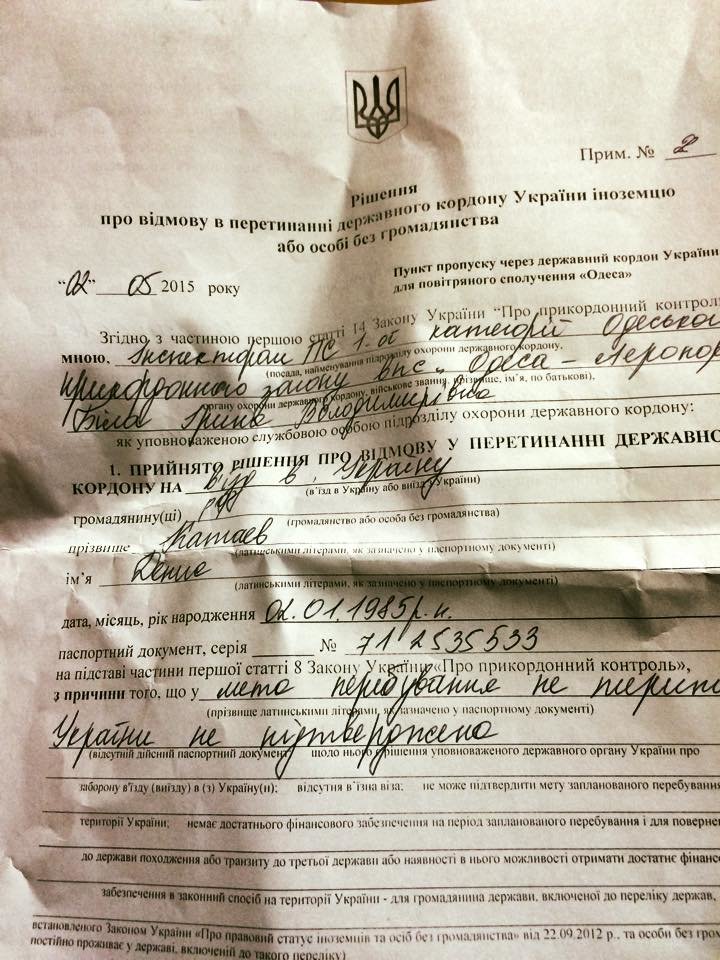 Прим. № 2
Рішення
про відмову в перетинанні державного кордону України іноземцю
або особі без громадянства
“02” 05 2015 року
Пункт пропуску через державний кордон України
для повітряного сполучення «Одеса»
Згідно з частиною першою статті 14 Закону України “Про прикордонний контроль
мною, Інспектором ПС 1-ої категорії Одеського
(посада, найменування підрозділу охорони державного кордону,
прикордонного загону впс „Одеса – Аеропор
органу охорони державного кордону, військове звання, прізвище, ім’я, по батькові),
Біла Ірина Володимирівна
як уповноваженою службовою особою підрозділу охорони державного кордону:
1. ПРИЙНЯТО РІШЕННЯ ПРО ВІДМОВУ У ПЕРЕТИНАННІ ДЕРЖАВНО
КОРДОНУ НА в’їзд в Україну
(в’їзд в Україну або виїзд з України)
громадянину(ці) рф
(громадянство або особа без громадянства)
прізвище Катаев
(латинськими літерами, як зазначено у паспортному документі)
ім’я Денис
(латинськими літерами, як зазначено у паспортному документі)
дата, місяць, рік народження 02.01.1985р.н.
паспортний документ, серія № 71 2535533
на підставі частини першої статті 8 Закону України «Про прикордонний контроль»,
з причини того, що у мета перебування на терито
(прізвище латинськими літерами, як зазначено у паспортному документі)
України не підтверджена
(відсутній дійсний паспортний документ; щодо нього є рішення уповноваженого державного органу України про
заборону в'їзду (виїзду) в (з) Україну(и); відсутня в`їзна віза; не може підтвердити мету запланованого перебування
території України; немає достатнього фінансового забезпечення на період запланованого перебування і для поверне
до держави походження або транзиту до третьої держави або наявності в нього можливості отримати достатнє фінансо
забезпечення в законний спосіб на території України - для громадянина держави, включеної до переліку держав,
встановленого Законом України «Про правовий статус іноземців та осіб без громадянства» від 22.09.2012 р., та особи без гром
постійно проживає у державі, включеній до такого переліку)